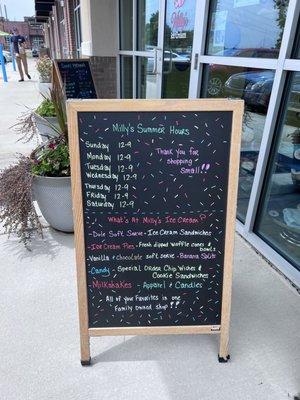 Milly's Summer Hours
Sunday 12-9
Monday 12-9
Tuesday 12-9
Wednesday 12-9
Thursday 12-9
Friday 12-9
Saturday 12-9
Thank you for
shopping
Small!!
What's At Milly's Ice Cream?
-Dole Soft Serve -Ice Cream Sandwiches
-Ice Cream Pies -Fresh dipped waffle cones &
bowls
-Vanilla & chocolate soft serve -Banana Splits
-Candy -Special Order Chip Wiches &
Cookie Sandwiches
-Milkshakes - Apparel & Candles
All of your Favorites in one
Family owned shop!!